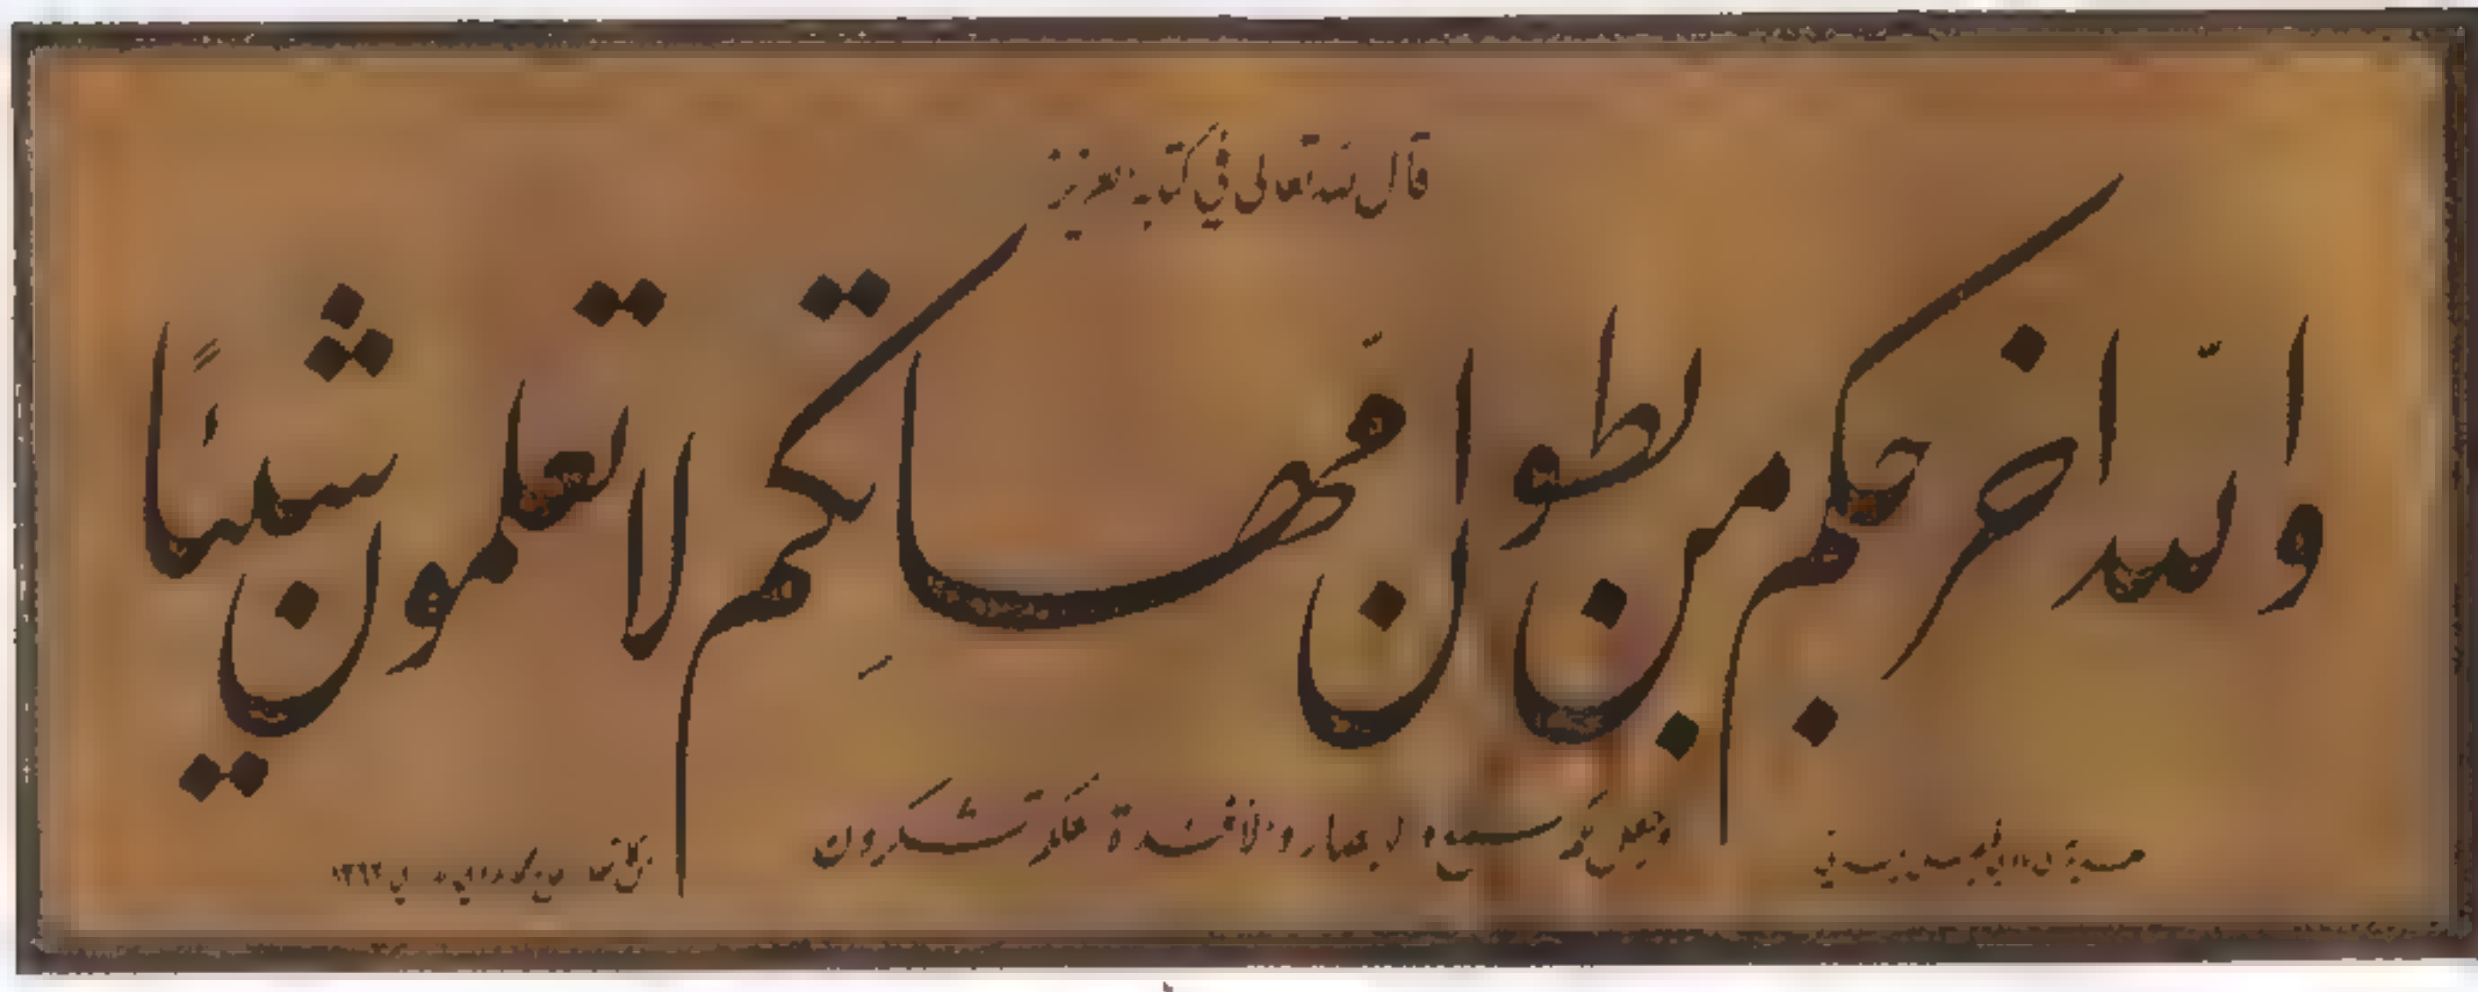 قال الله تعالى في كتابه العزيز
والله اخرجكم من بطون امهاتكم لا تعلمون شيئاً
وجعل لكم السمع والابصار والافئدة لعلكم تشكرون